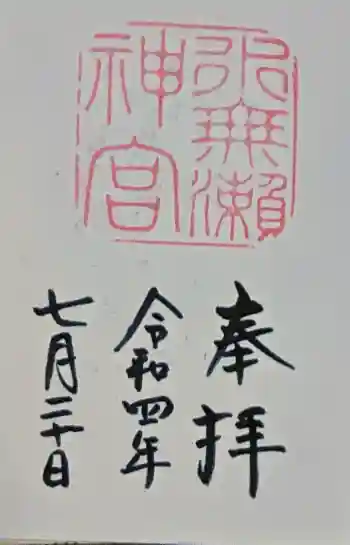 水無瀬
神宮
奉拝
令和四年
七月二十日